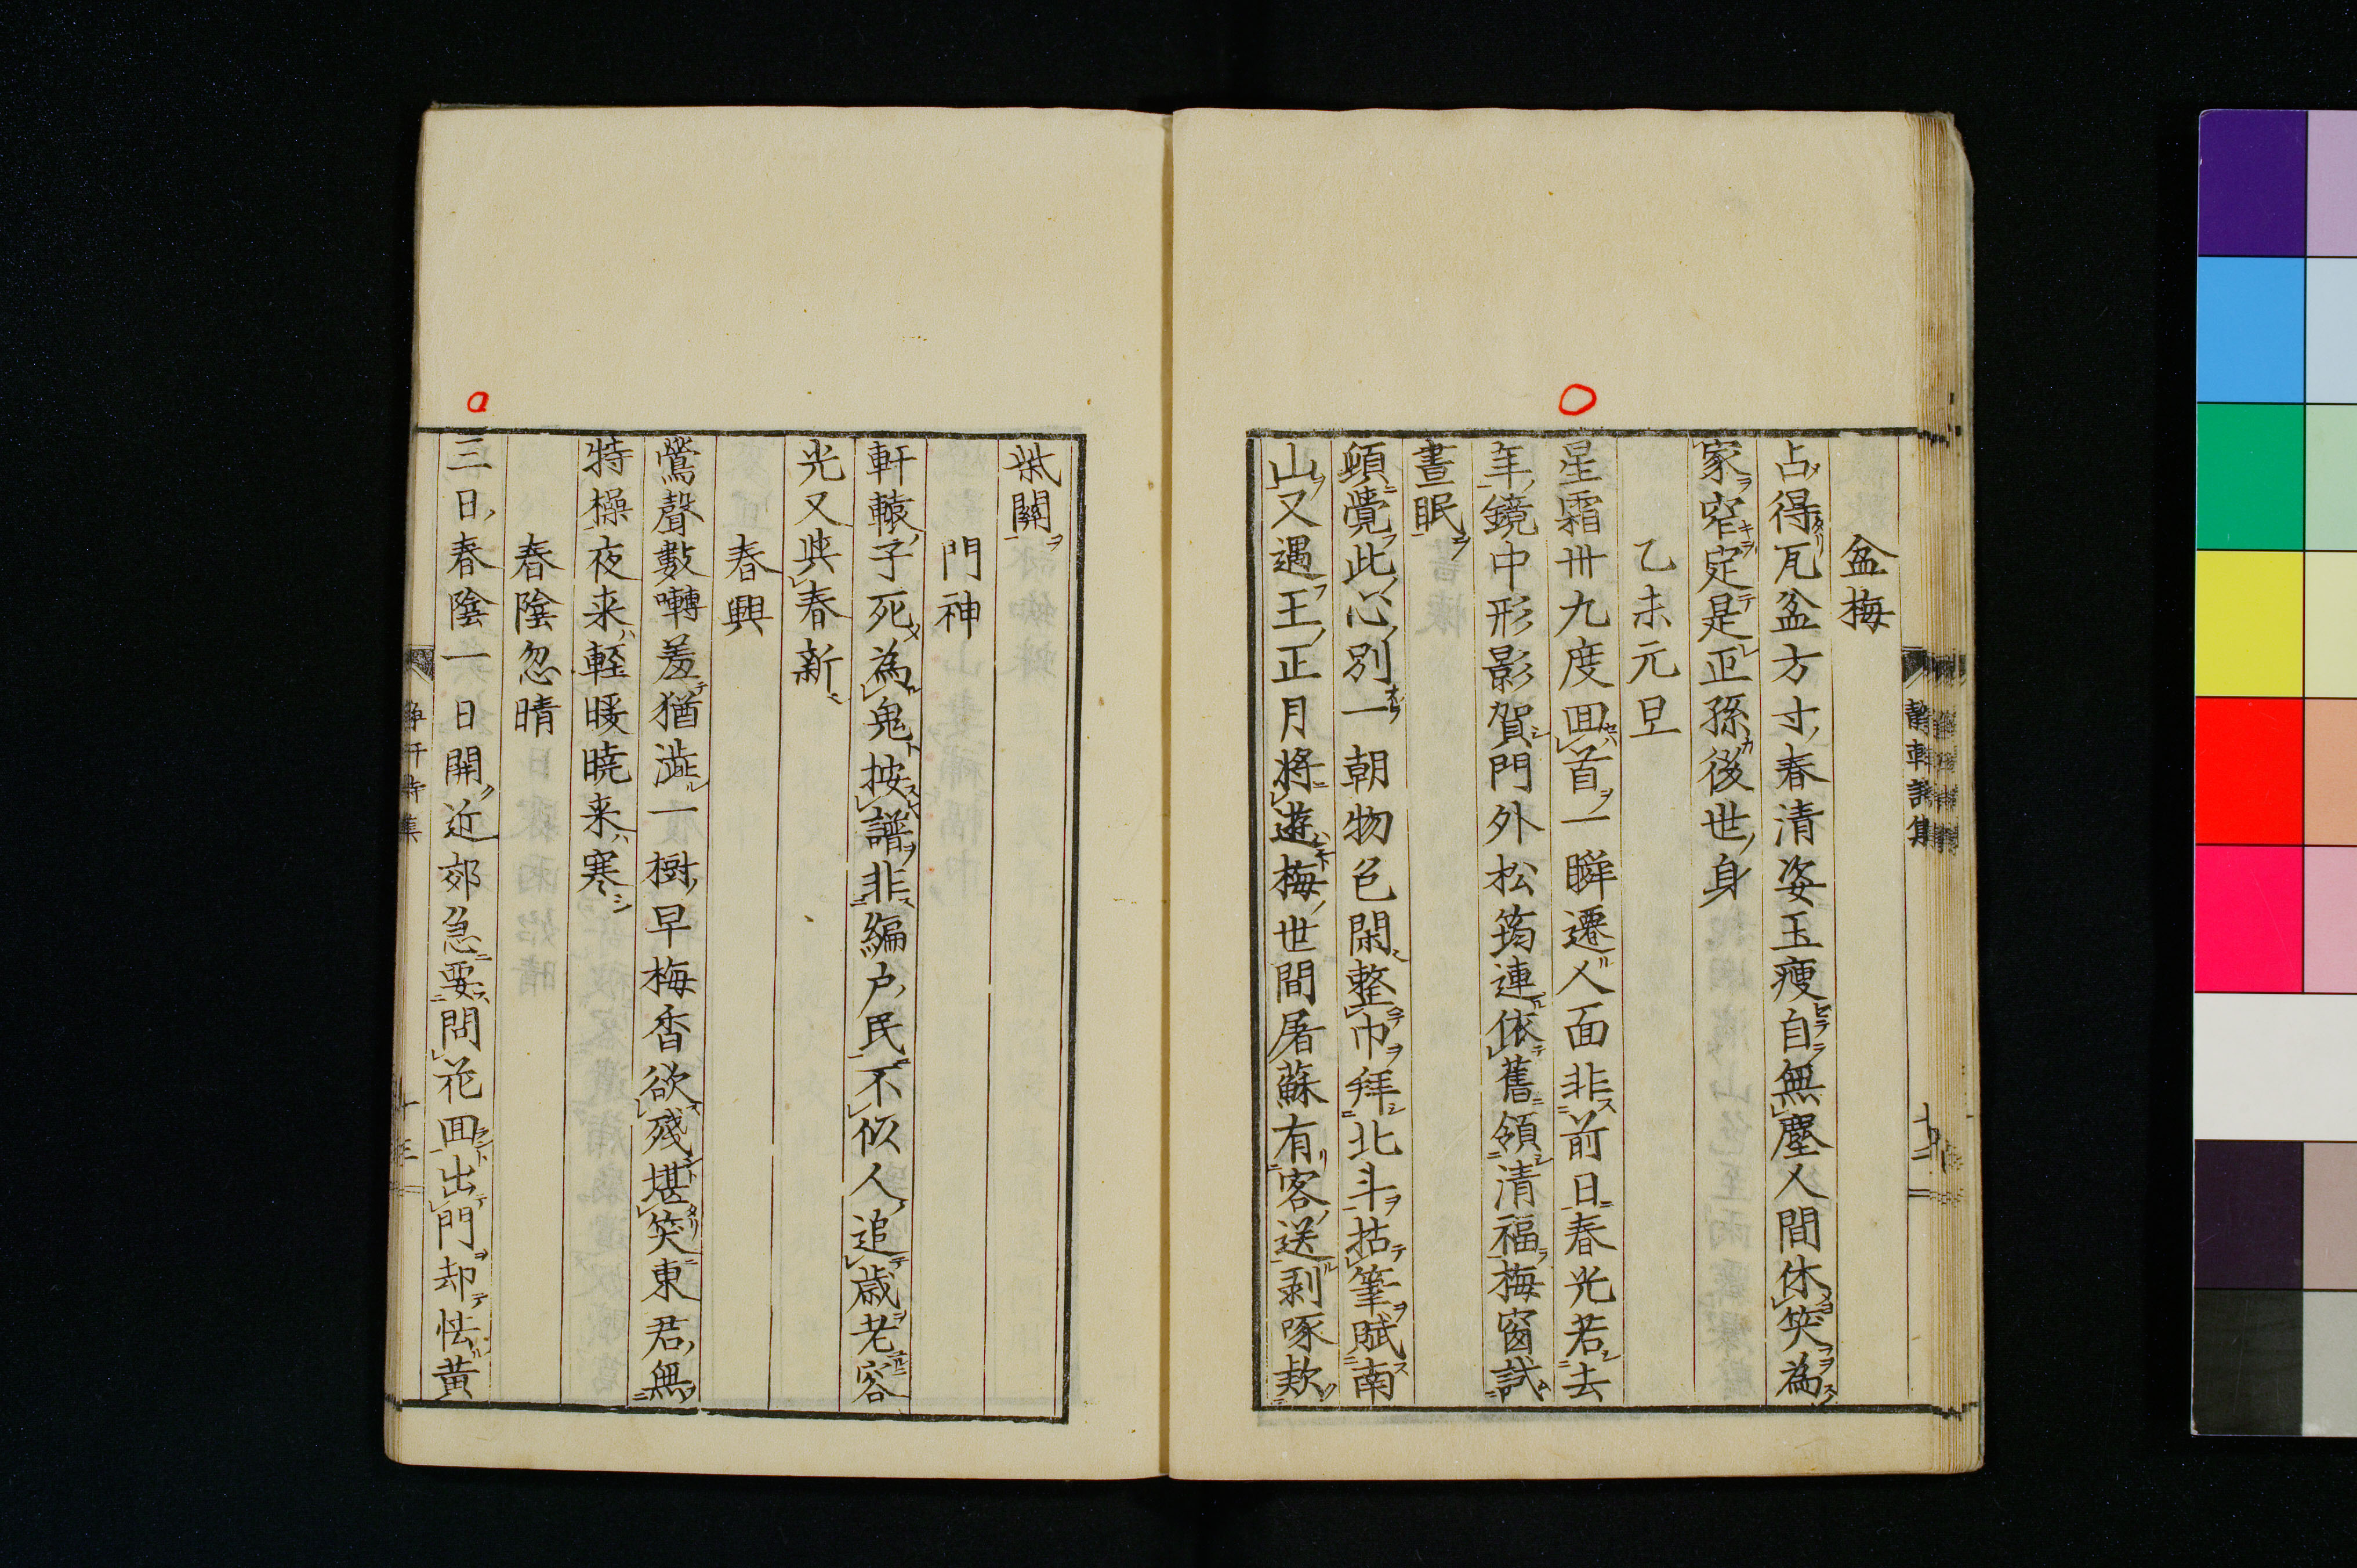 盆梅
占得瓦盆方寸春清姿玉瘦自無塵人間休笑為
家窄定是逋孫後世身
乙未元旦
星霜卅九度回首一瞬遷人面非前日春光若去
年鏡中形影賀門外松筠連依舊領清福梅窗試
晝眠
頓覺此心別一朝物色閑整巾拜北斗拈筆賦南
山又遇王正月將遊梅世間屠蘇有客送剥啄欵
柴關
門神
軒轅子死為鬼按譜非編戸民不似人追歳老容
光又與春新
春興
鶯聲數囀羞猶澁一樹早梅香欲殘堪笑東君無
特操夜来輕暖曉来寒
春陰忽晴
三日春陰一日開近郊急要問花回出門却怯黄